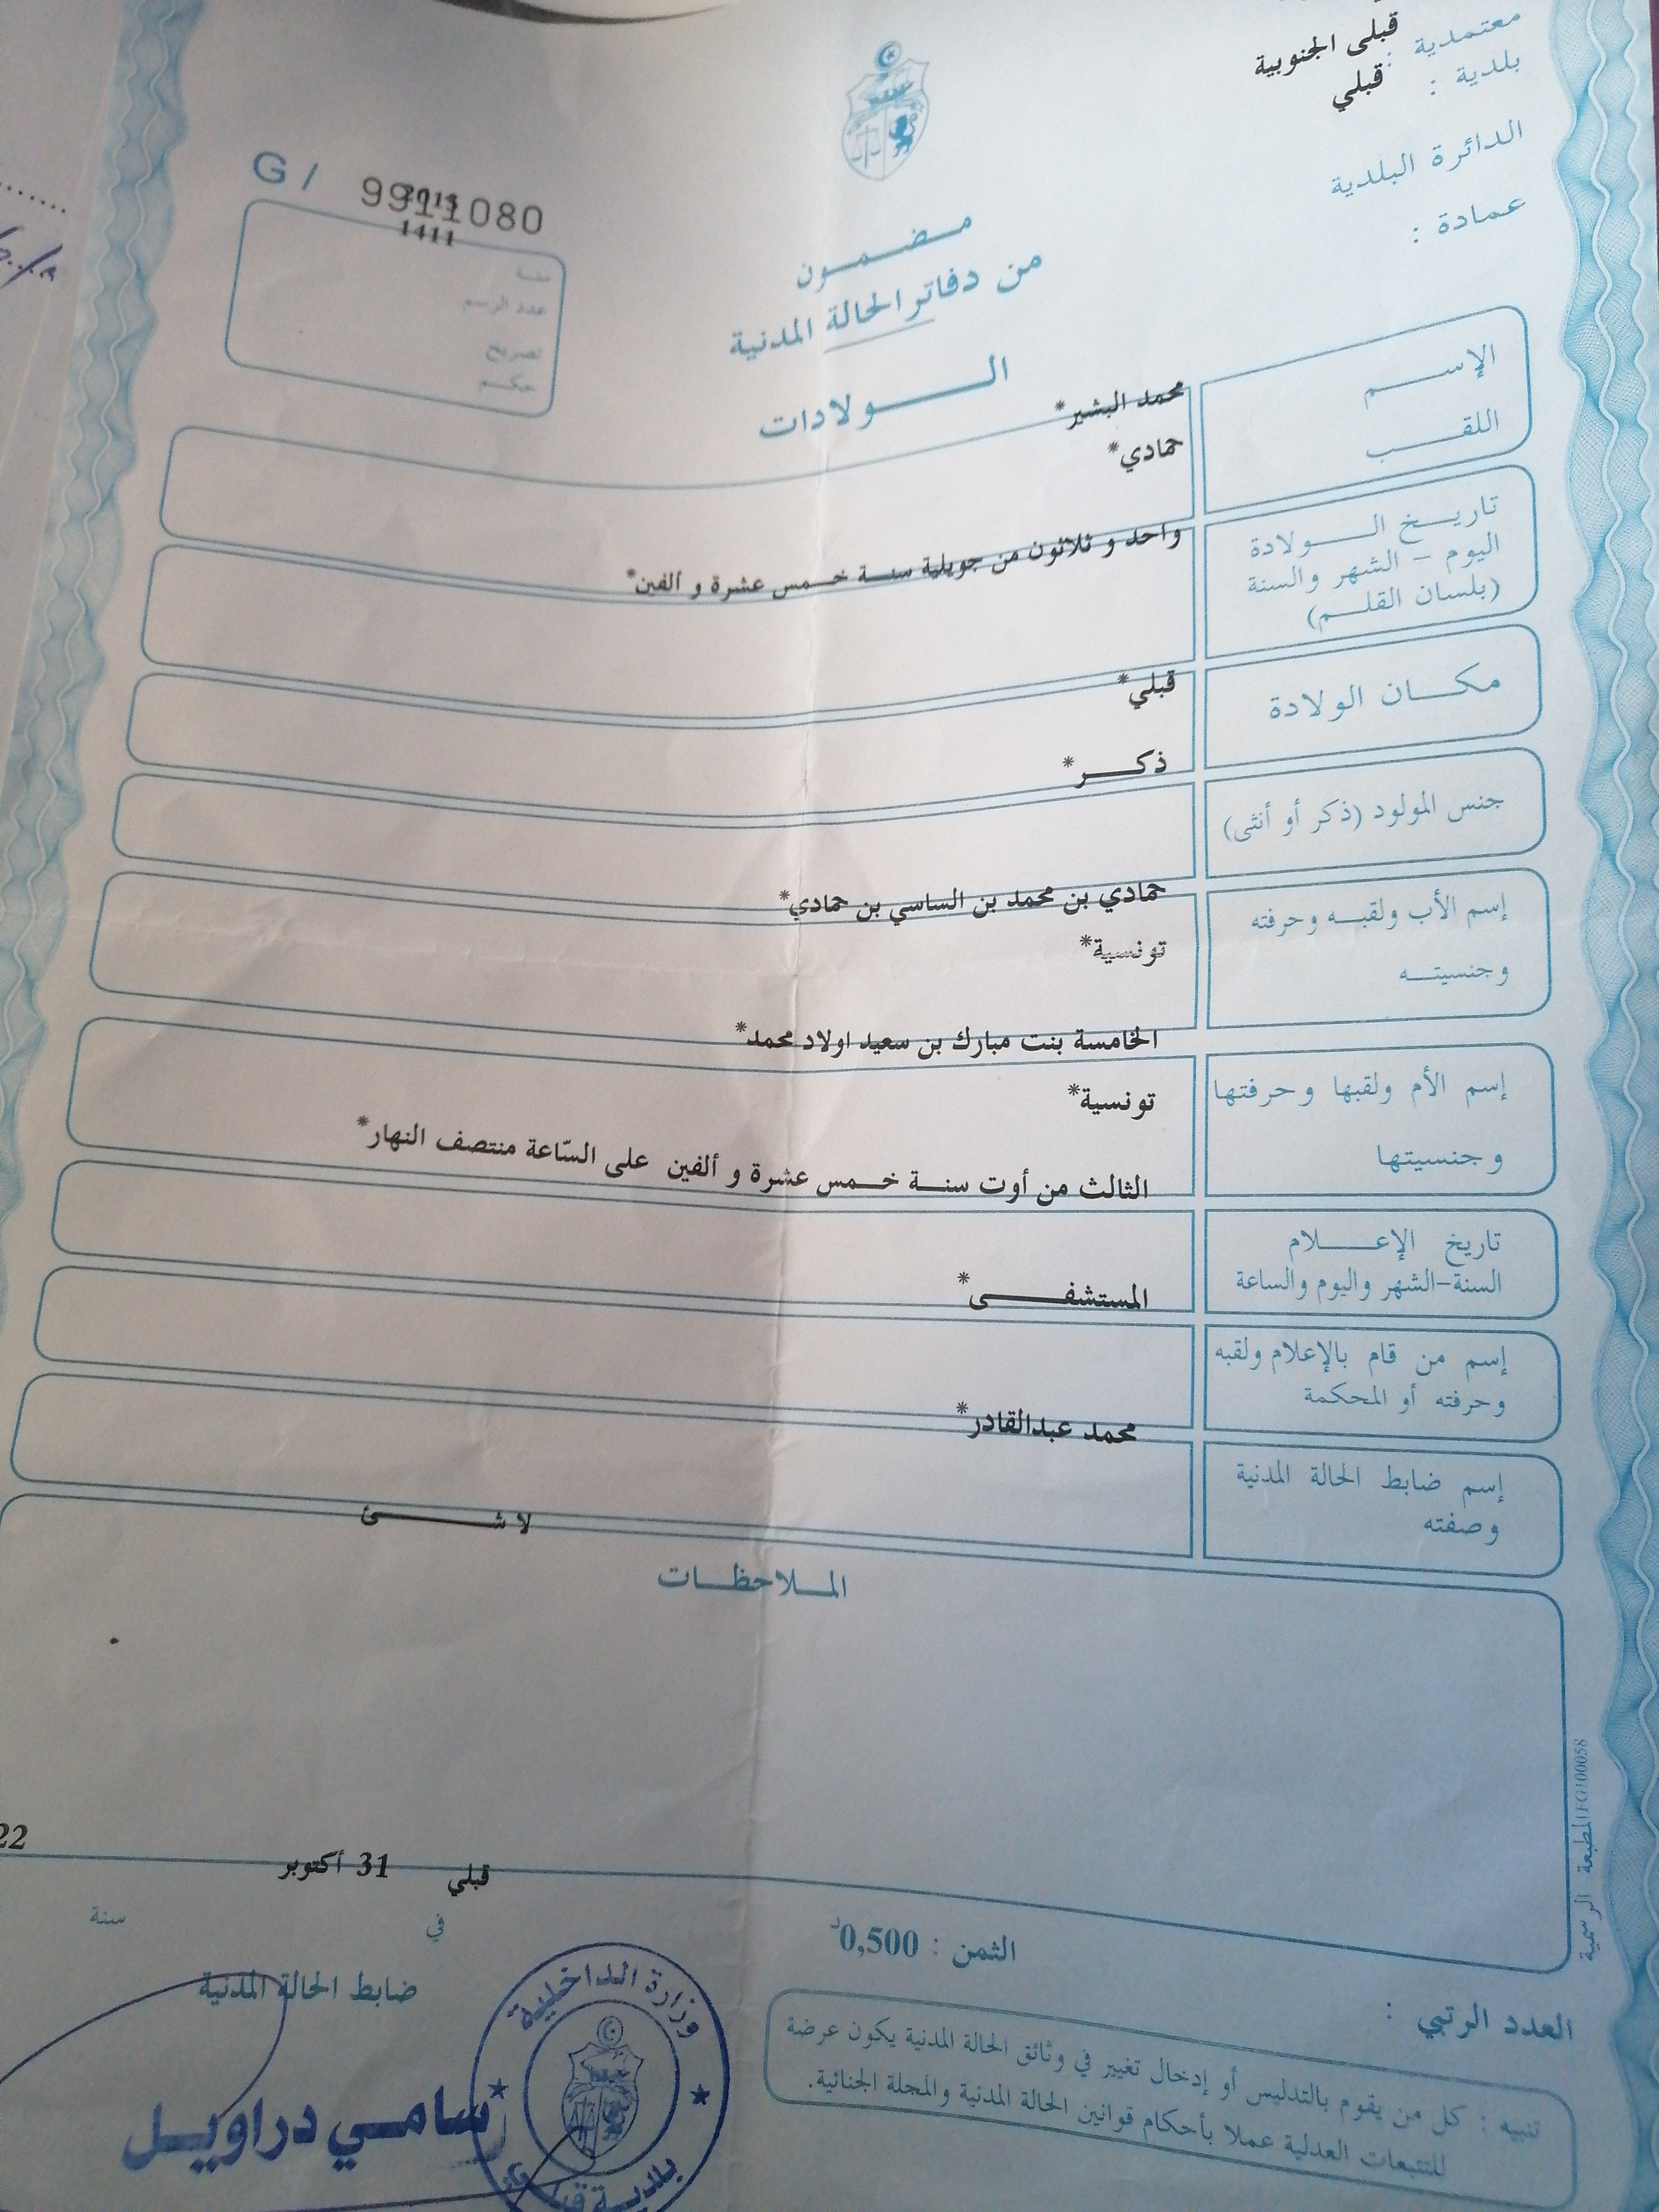 معتمدية : قبلى الجنوبية
بلدية : قبلي
الدائرة البلدية
عمادة :
G / 9911080
2015
1411
سنة
عدد الرسم
تصريح
حكم
مضمون
من دفاتر الحالة المدنية
الولادات
الإسم
محمد البشير*
اللقب
حمادي*
تاريخ الولادة
اليوم - الشهر والسنة
(بلسان القلم)
واحد و ثلاثون من جويلية سنة خمس عشرة و ألفين*
مكان الولادة
قبلي*
جنس المولود (ذكر أو أنثى)
ذكر*
إسم الأب ولقبه وحرفته
وجنسيته
حمادي بن محمد بن الساسي بن حمادي*
تونسية*
إسم الأم ولقبها وحرفتها
وجنسيتها
الخامسة بنت مبارك بن سعيد اولاد محمد*
تونسية*
تاريخ الإعلام
السنة-الشهر واليوم والساعة
الثالث من أوت سنة خمس عشرة و ألفين على السّاعة منتصف النهار*
إسم من قام بالإعلام ولقبه
وحرفته أو المحكمة
المستشفى*
إسم ضابط الحالة المدنية
وصفته
محمد عبدالقادر*
لا شئ
الملاحظات
قبلي 31 أكتوبر 22
في سنة
ضابط الحالة المدنية
سامي دراويل
وزارة الداخلية
بلدية قبلي
الثمن : 0,500د
العدد الرتبي :
تنبيه : كل من يقوم بالتدليس أو إدخال تغيير في وثائق الحالة المدنية يكون عرضة
للتتبعات العدلية عملا بأحكام قوانين الحالة المدنية والمجلة الجنائية.
المطبعة الرسمية